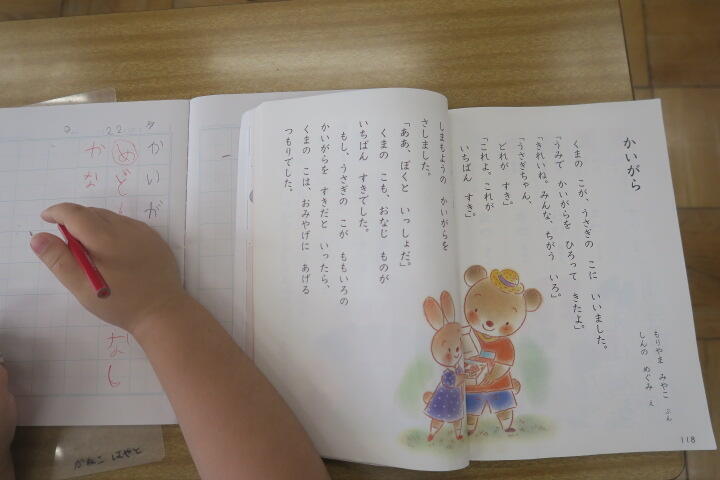 かいがら
もりやま みやこ ぶん
しんの めぐみ え
くまの こが、うさぎの こに いいました。
「うみで かいがらを ひろって きたよ。」
「きれいね。みんな、ちがう いろ。」
「うさぎちゃん、
どれが すき。」
「これよ。これが
いちばん すき。」
118
しまもようの かいがらを
さしました。
「ああ、ぼくと いっしょだ。」
くまの こも、おなじ ものが
いちばん すきでした。
もし、うさぎの こが ももいろの
かいがらを すきだと いったら、
くまの こは、おみやげに あげる
つもりでした。
かいが
22
めど
かな
かねこ はやと